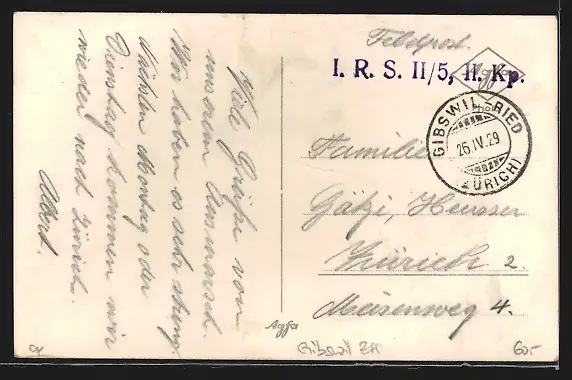 Viele Grüße von
unserem Ausmarsch.
Wir haben es sehr streng.
Nächsten Montag oder
Dienstag kommen wir
wieder nach Zürich.
Albert.
Feldpost.
I. R. S. II/5, II. Kp.
Agfa
GIBSWIL-RIED
26.IV.29
(ZÜRICH)
Familie
Götzi, Heusser
Zürich 2.
Meisenweg 4.
Agfa
Gibswil ZH
60.-